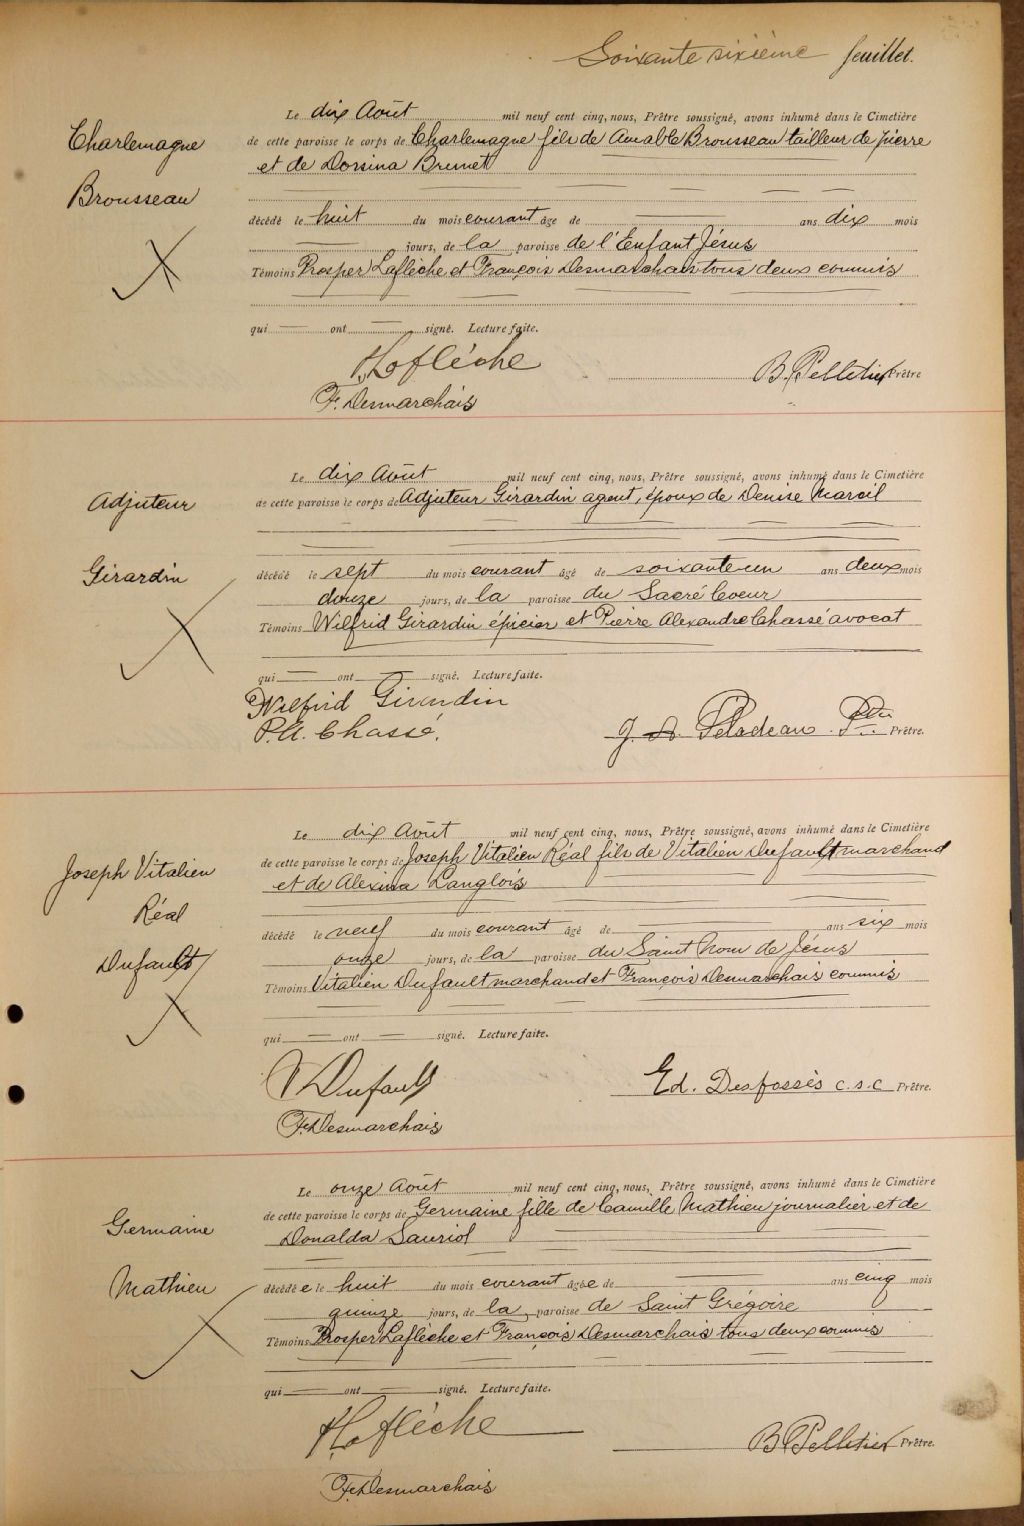 Soixante sixième feuillet.
Charlemagne
Brousseau
Le dix Août mil neuf cent cinq, nous, Prêtre soussigné, avons inhumé dans le Cimetière
de cette paroisse le corps de Charlemagne fils de Amable Brousseau tailleur de pierre
et de Dorsina Brunet
décédé le huit du mois courant âgé de ans dix mois
jours, de la paroisse de l'Enfant Jésus
Témoins Prosper Laflèche et François Desmarchais tous deux commis
qui ont signé. Lecture faite.
P. Laflèche
B. Pelletier Prêtre
F. Desmarchais
Adjuteur
Girardin
Le dix Août mil neuf cent cinq, nous, Prêtre soussigné, avons inhumé dans le Cimetière
de cette paroisse le corps de Adjuteur Girardin agent, époux de Denise Marcil
décédé le sept du mois courant âgé de soixante un ans deux mois
douze jours, de la paroisse du Sacré Coeur
Témoins Wilfrid Girardin épicier et Pierre Alexandre Chassé avocat
qui ont signé. Lecture faite.
Wilfrid Girardin
P. A. Chassé.
J. A. Péladeau Ptre Prêtre.
Joseph Vitalien
Réal
Dufault
Le dix Août mil neuf cent cinq, nous, Prêtre soussigné, avons inhumé dans le Cimetière
de cette paroisse le corps de Joseph Vitalien Réal fils de Vitalien Dufault marchand
et de Alexina Langlois
décédé le neuf du mois courant âgé de ans six mois
onze jours, de la paroisse du Saint Nom de Jésus
Témoins Vitalien Dufault marchand et François Desmarchais commis
qui ont signé. Lecture faite.
V Dufault
Ed. Desfossés c.s.c Prêtre.
F. Desmarchais
Germaine
Mathieu
Le onze Août mil neuf cent cinq, nous, Prêtre soussigné, avons inhumé dans le Cimetière
de cette paroisse le corps de Germaine fille de Camille Mathieu journalier et de
Donalda Sauriol
décédée le huit du mois courant âgée de ans cinq mois
quinze jours, de la paroisse de Saint Grégoire
Témoins Prosper Laflèche et François Desmarchais tous deux commis
qui ont signé. Lecture faite.
P. Laflèche
B. Pelletier Prêtre.
F. Desmarchais